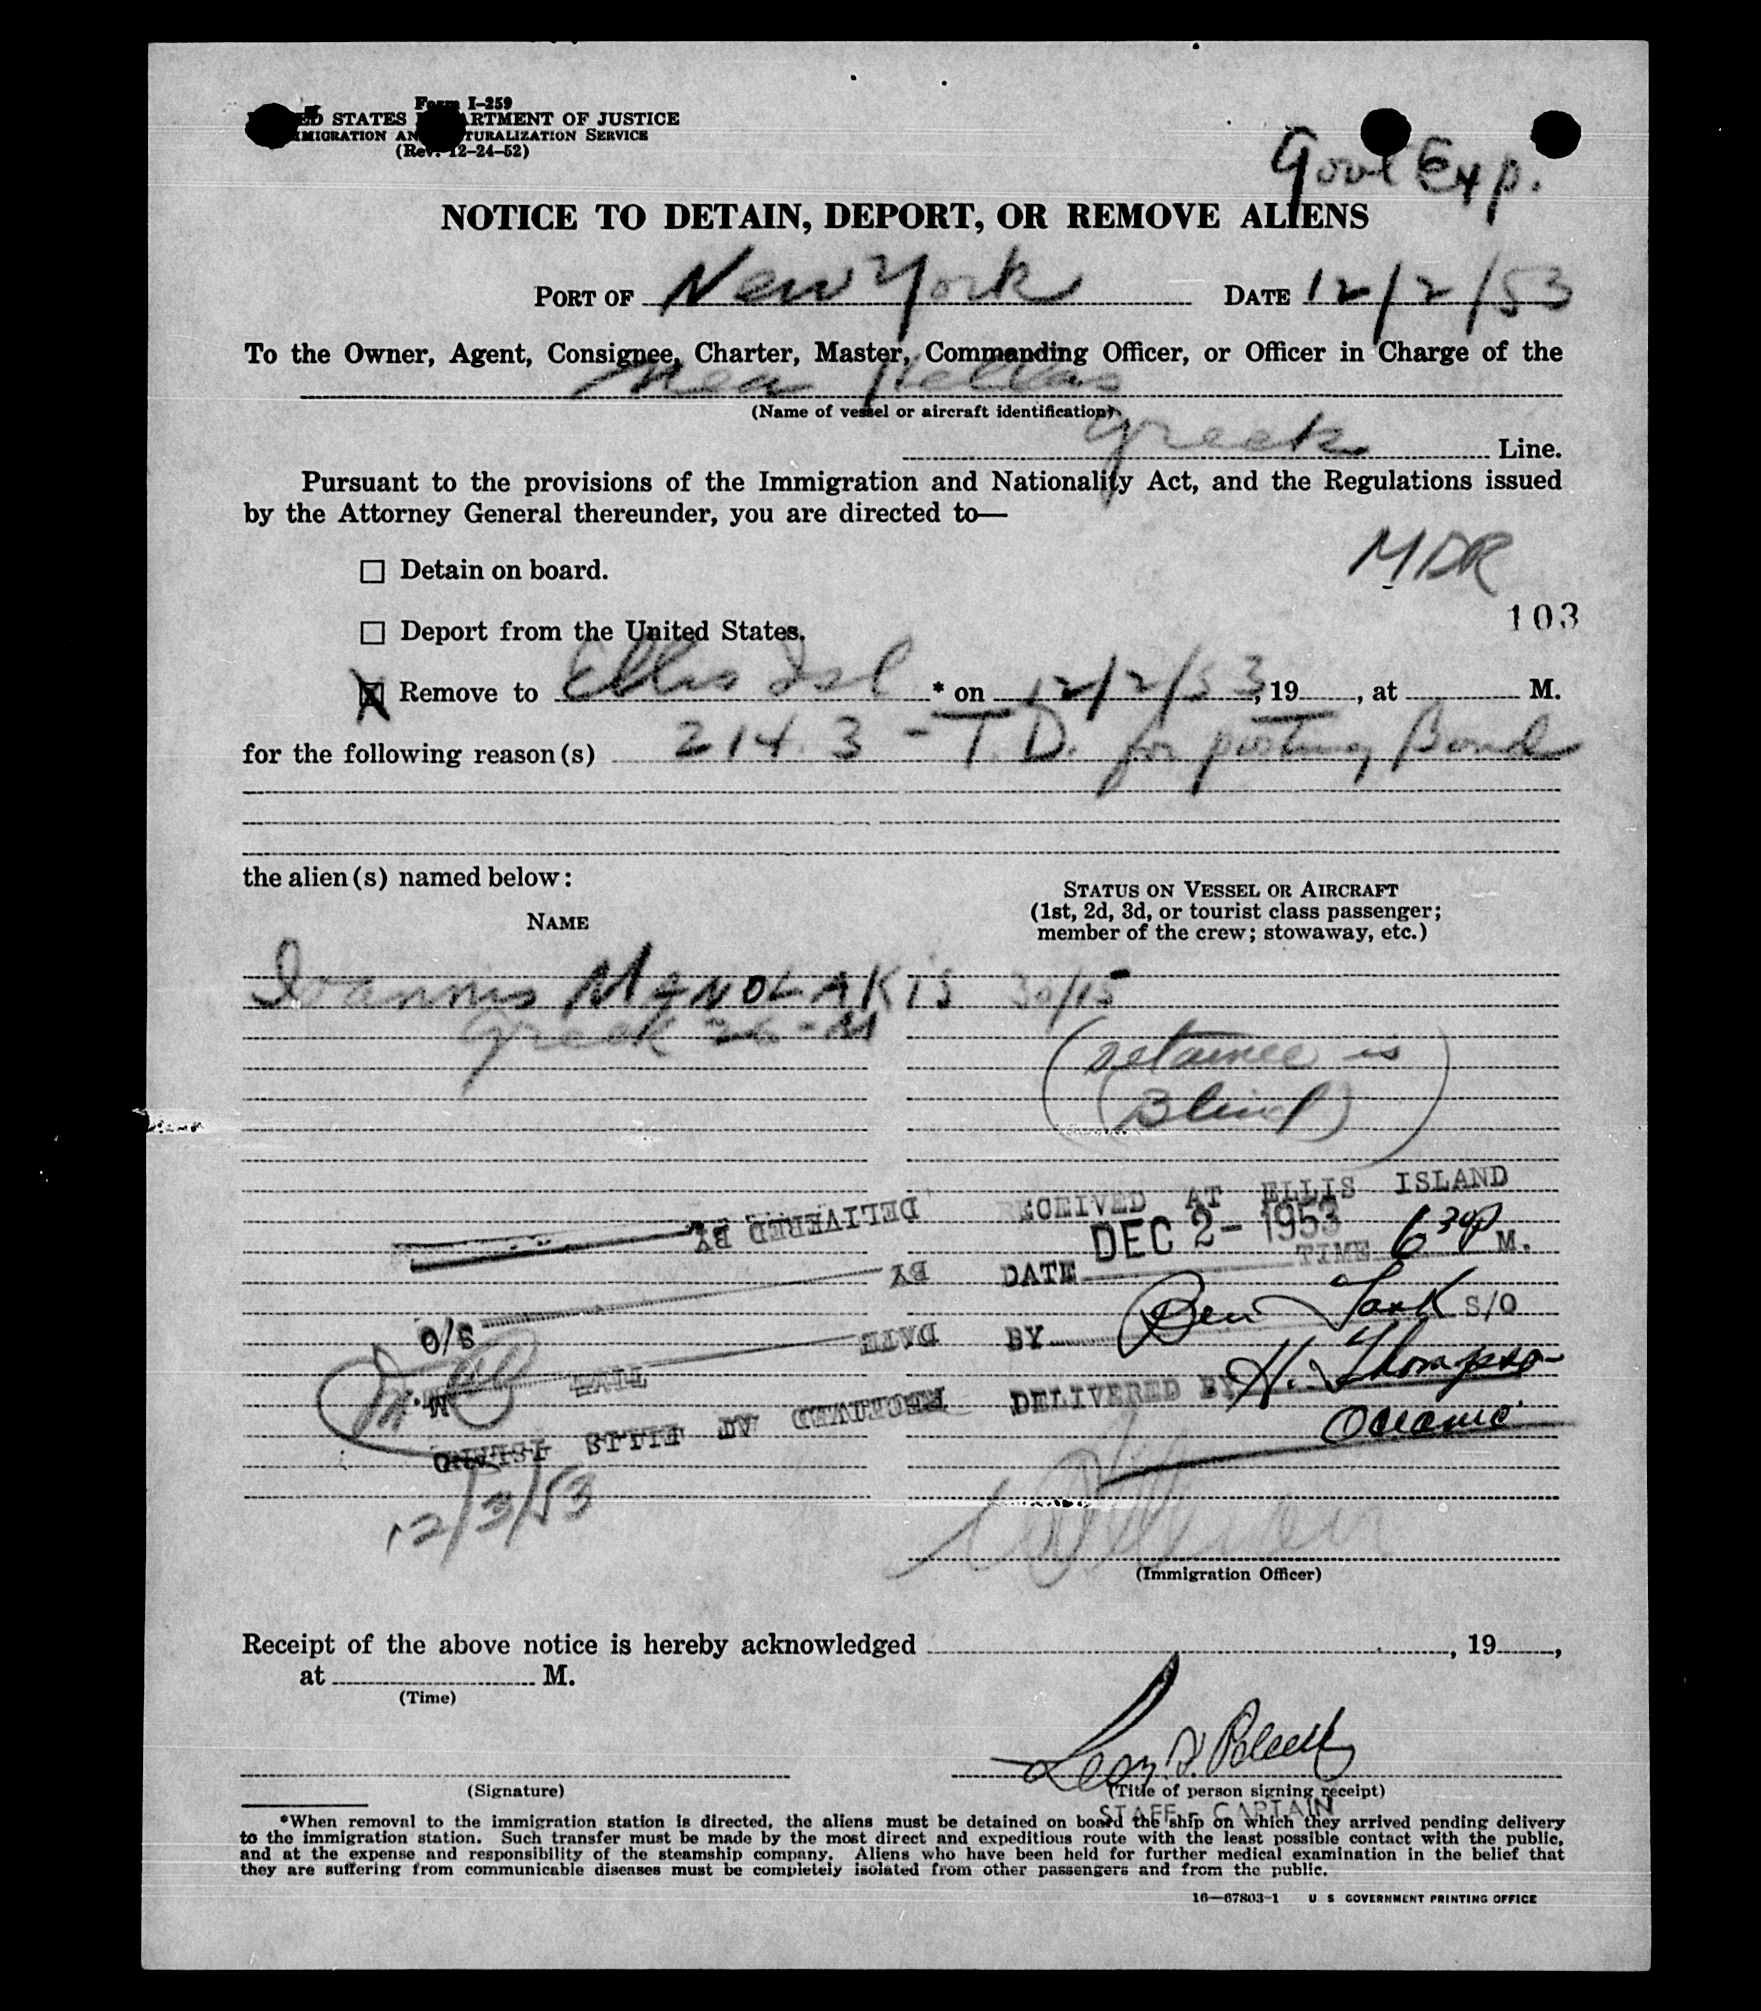 Form I-259
STATES DEPARTMENT OF JUSTICE
IMMIGRATION AND NATURALIZATION SERVICE
(Rev. 12-24-52)
Govt Exp.
NOTICE TO DETAIN, DEPORT, OR REMOVE ALIENS
PORT OF New York DATE 12/2/53
To the Owner, Agent, Consignee, Charter, Master, Commanding Officer, or Officer in Charge of the
Nea Hellas
(Name of vessel or aircraft identification)
Greek Line.
Pursuant to the provisions of the Immigration and Nationality Act, and the Regulations issued
by the Attorney General thereunder, you are directed to—
MDR
☐ Detain on board.
103
☐ Deport from the United States.
☒ Remove to Ellis Isl * on 12/2/53, 19, at M.
for the following reason(s) 214.3 - T.D. for posting Bond
the alien(s) named below:
STATUS ON VESSEL OR AIRCRAFT
(1st, 2d, 3d, or tourist class passenger;
member of the crew; stowaway, etc.)
NAME
Ioannis MANOLAKIS 30/15
Greek 26-M
(detainee is
(Blind)
RECEIVED AT ELLIS ISLAND
DEC 2 - 1953
DATE TIME 6 30 P M.
BY Ben S/O
DELIVERED BY H. Thompson
Oceanic
DELIVERED BY
BY
S/O
DATE
TIME M.
RECEIVED AT ELLIS ISLAND
12/3/53
(Immigration Officer)
Receipt of the above notice is hereby acknowledged , 19,
at M.
(Time)
(Signature)
(Title of person signing receipt)
STAFF - CAPTAIN
*When removal to the immigration station is directed, the aliens must be detained on board the ship on which they arrived pending delivery
to the immigration station. Such transfer must be made by the most direct and expeditious route with the least possible contact with the public,
and at the expense and responsibility of the steamship company. Aliens who have been held for further medical examination in the belief that
they are suffering from communicable diseases must be completely isolated from other passengers and from the public.
16—67803-1 U S GOVERNMENT PRINTING OFFICE